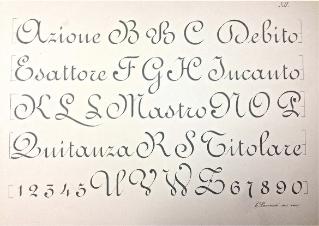 Azione B B C Debito
Esattore F G H Incanto
K L L Mastro N O P
Quitanza R S Titolare
1 2 3 4 5 U V W Z 6 7 8 9 0